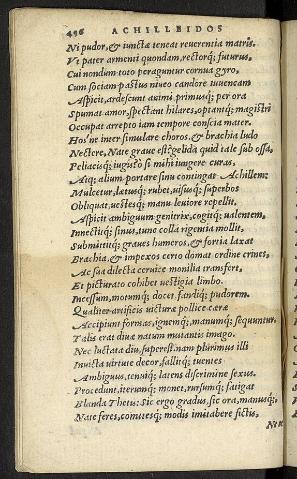 496 ACHILLEIDOS
Ni pudor, & iunctæ teneat reuerentia matris.
Vt pater armenti quondam, rectorq; futurus,
Cui nondum toto peraguntur cornua gyro,
Cum sociam pastus niueo candore iuuencam
Aspicit, ardescunt animi primusq; per ora
Spumat amor, spectant hilares, optantq; magistri
Occupat arrepto iam tempore conscia mater.
Hos ne inter simulare choros, & brachia ludo
Nectere, Nate graue est? gelida quid tale sub ossa,
Peliacisq; iugis? o si mihi iungere curas,
Atq; alium portare sinu contingat Achillem:
Mulcetur, lætusq; rubet, uisusq; superbos
Obliquat, uestesq; manu leuiore repellit.
Aspicit ambiguum genitrix, cogitq; ualentem,
Innectitq; sinus, tunc colla rigentia mollit,
Submittitq; graues humeros, & fortia laxat
Brachia, & impexos certo domat ordine crines,
Ac sua dilecta ceruice monilia transfert.
Et picturato cohibet uestigia limbo.
Incessum, motumq; docet, fandiq; pudorem.
Qualiter artificis uicturæ pollice ceræ
Accipiunt formas, ignemq;, manumq; sequuntur.
Talis erat diuæ natum mutantis imago.
Nec luctata diu, superest. nam plurimus illi
Inuicta uirtute decor, fallitq; tuentes
Ambiguus, tenuiq; latens discrimine sexus.
Procedunt, iterumq; monet, rursumq; fatigat
Blanda Thetis: Sic ergo gradus, sic ora, manusq;,
Nate feres, comitesq; modis imitabere fictis.